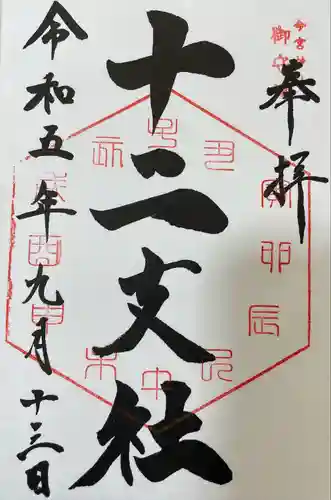 奉拝
十二支社
令和五年九月十三日
子
丑
寅
卯
辰
巳
午
未
申
酉
戌
亥